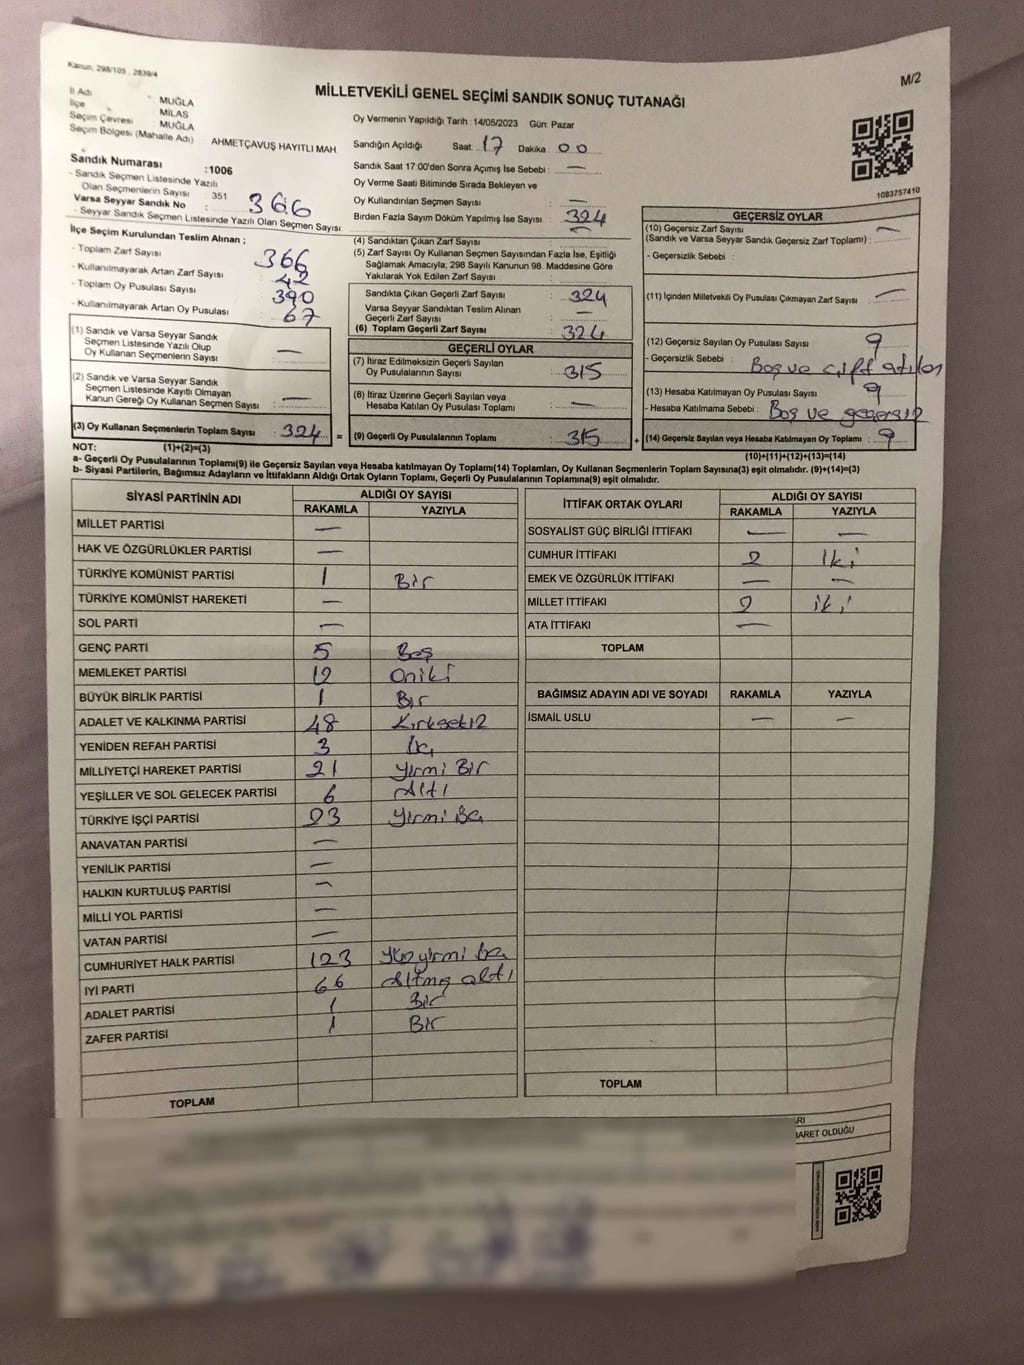 Kanun; 298/105 , 2839/4
M/2
MİLLETVEKİLİ GENEL SEÇİMİ SANDIK SONUÇ TUTANAĞI
İl Adı : MUĞLA
İlçe : MİLAS
Seçim Çevresi : MUĞLA
Seçim Bölgesi (Mahalle Adı) : AHMETÇAVUŞ HAYITLI MAH
Sandık Numarası :1006
- Sandık Seçmen Listesinde Yazılı
Olan Seçmenlerin Sayısı : 351
Varsa Seyyar Sandık No :
366
- Seyyar Sandık Seçmen Listesinde Yazılı Olan Seçmen Sayısı
İlçe Seçim Kurulundan Teslim Alınan ;
- Toplam Zarf Sayısı 366
- Kullanılmayarak Artan Zarf Sayısı 42
- Toplam Oy Pusulası Sayısı 390
- Kullanılmayarak Artan Oy Pusulası 67
(1) Sandık ve Varsa Seyyar Sandık
Seçmen Listesinde Yazılı Olup
Oy Kullanan Seçmenlerin Sayısı : —
(2) Sandık ve Varsa Seyyar Sandık
Seçmen Listesinde Kayıtlı Olmayan
Kanun Gereği Oy Kullanan Seçmen Sayısı : —
(3) Oy Kullanan Seçmenlerin Toplam Sayısı : 324 =
Oy Vermenin Yapıldığı Tarih : 14/05/2023 Gün: Pazar
Sandığın Açıldığı Saat: 17 Dakika : 00
Sandık Saat 17:00'den Sonra Açımış İse Sebebi : —
Oy Verme Saati Bitiminde Sırada Bekleyen ve
Oy Kullandırılan Seçmen Sayısı : —
Birden Fazla Sayım Döküm Yapılmış İse Sayısı : 324
(4) Sandıktan Çıkan Zarf Sayısı : —
(5) Zarf Sayısı Oy Kullanan Seçmen Sayısından Fazla İse, Eşitliği
Sağlamak Amacıyla, 298 Sayılı Kanunun 98. Maddesine Göre
Yakılarak Yok Edilen Zarf Sayısı :
Sandıkta Çıkan Geçerli Zarf Sayısı : 324
Varsa Seyyar Sandıktan Teslim Alınan
Geçerli Zarf Sayısı : —
(6) Toplam Geçerli Zarf Sayısı : 324
GEÇERLİ OYLAR
(7) İtiraz Edilmeksizin Geçerli Sayılan
Oy Pusulalarının Sayısı : 315
(8) İtiraz Üzerine Geçerli Sayılan veya
Hesaba Katılan Oy Pusulası Toplamı : —
(9) Geçerli Oy Pusulalarının Toplamı : 315 +
1083757410
GEÇERSİZ OYLAR
(10) Geçersiz Zarf Sayısı —
(Sandık ve Varsa Seyyar Sandık Geçersiz Zarf Toplamı) :
- Geçersizlik Sebebi :
(11) İçinden Milletvekili Oy Pusulası Çıkmayan Zarf Sayısı : —
(12) Geçersiz Sayılan Oy Pusulası Sayısı : 9
- Geçersizlik Sebebi : Boş ve çift atılan
(13) Hesaba Katılmayan Oy Pusulası Sayısı : 9
- Hesaba Katılmama Sebebi : Boş ve geçersiz
(14) Geçersiz Sayılan veya Hesaba Katılmayan Oy Toplamı : 9
NOT: (1)+(2)=(3)
(10)+(11)+(12)+(13)=(14)
a- Geçerli Oy Pusulalarının Toplamı(9) ile Geçersiz Sayılan veya Hesaba katılmayan Oy Toplamı(14) Toplamları, Oy Kullanan Seçmenlerin Toplam Sayısına(3) eşit olmalıdır. (9)+(14)=(3)
b- Siyasi Partilerin, Bağımsız Adayların ve İttifakların Aldığı Ortak Oyların Toplamı, Geçerli Oy Pusulalarının Toplamına(9) eşit olmalıdır.
SİYASİ PARTİNİN ADI ALDIĞI OY SAYISI
RAKAMLA YAZIYLA
MİLLET PARTİSİ —
HAK VE ÖZGÜRLÜKLER PARTİSİ —
TÜRKİYE KOMÜNİST PARTİSİ 1 Bir
TÜRKİYE KOMÜNİST HAREKETİ —
SOL PARTİ —
GENÇ PARTİ 5 Beş
MEMLEKET PARTİSİ 12 Oniki
BÜYÜK BİRLİK PARTİSİ 1 Bir
ADALET VE KALKINMA PARTİSİ 48 Kırksekiz
YENİDEN REFAH PARTİSİ 3 Üç
MİLLİYETÇİ HAREKET PARTİSİ 21 Yirmi Bir
YEŞİLLER VE SOL GELECEK PARTİSİ 6 Altı
TÜRKİYE İŞÇİ PARTİSİ 23 Yirmi Üç
ANAVATAN PARTİSİ —
YENİLİK PARTİSİ —
HALKIN KURTULUŞ PARTİSİ —
MİLLİ YOL PARTİSİ —
VATAN PARTİSİ —
CUMHURİYET HALK PARTİSİ 123 Yüzyirmi üç
İYİ PARTİ 66 Altmış altı
ADALET PARTİSİ 1 Bir
ZAFER PARTİSİ 1 Bir
TOPLAM
İTTİFAK ORTAK OYLARI ALDIĞI OY SAYISI
RAKAMLA YAZIYLA
SOSYALİST GÜÇ BİRLİĞİ İTTİFAKI — —
CUMHUR İTTİFAKI 2 İki
EMEK VE ÖZGÜRLÜK İTTİFAKI — —
MİLLET İTTİFAKI 2 iki
ATA İTTİFAKI —
TOPLAM
BAĞIMSIZ ADAYIN ADI VE SOYADI RAKAMLA YAZIYLA
İSMAİL USLU — —
TOPLAM
OLDUĞU